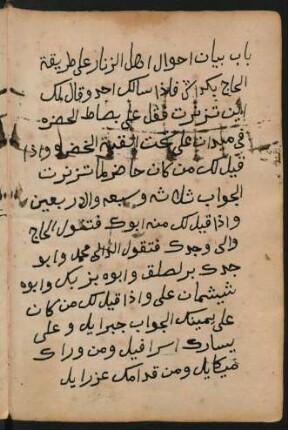 باب بيان احوال اهل الزنار على طريقة
الحاج بكداش فاذا سالك احد وقال لك
اين تزنرت فقل على بصاط الحضره
في ميدان على تحت القبة الخضرا واذا
قيل لك من كان حاضر لما تزنرت
الجواب ثلاثه وسبعه والاربعين
واذا قيل لك منه ابوك فتقول الحاج
والى وجدك فتقول الدالى محمد وابو
جدك وابوه بزبك وابوه
شيشمان على واذا قيل لك من كان
على يمينك الجواب جبرايل وعلى
يسارك اسرافيل ومن وراك
ميكايل ومن قدامك عزرايل